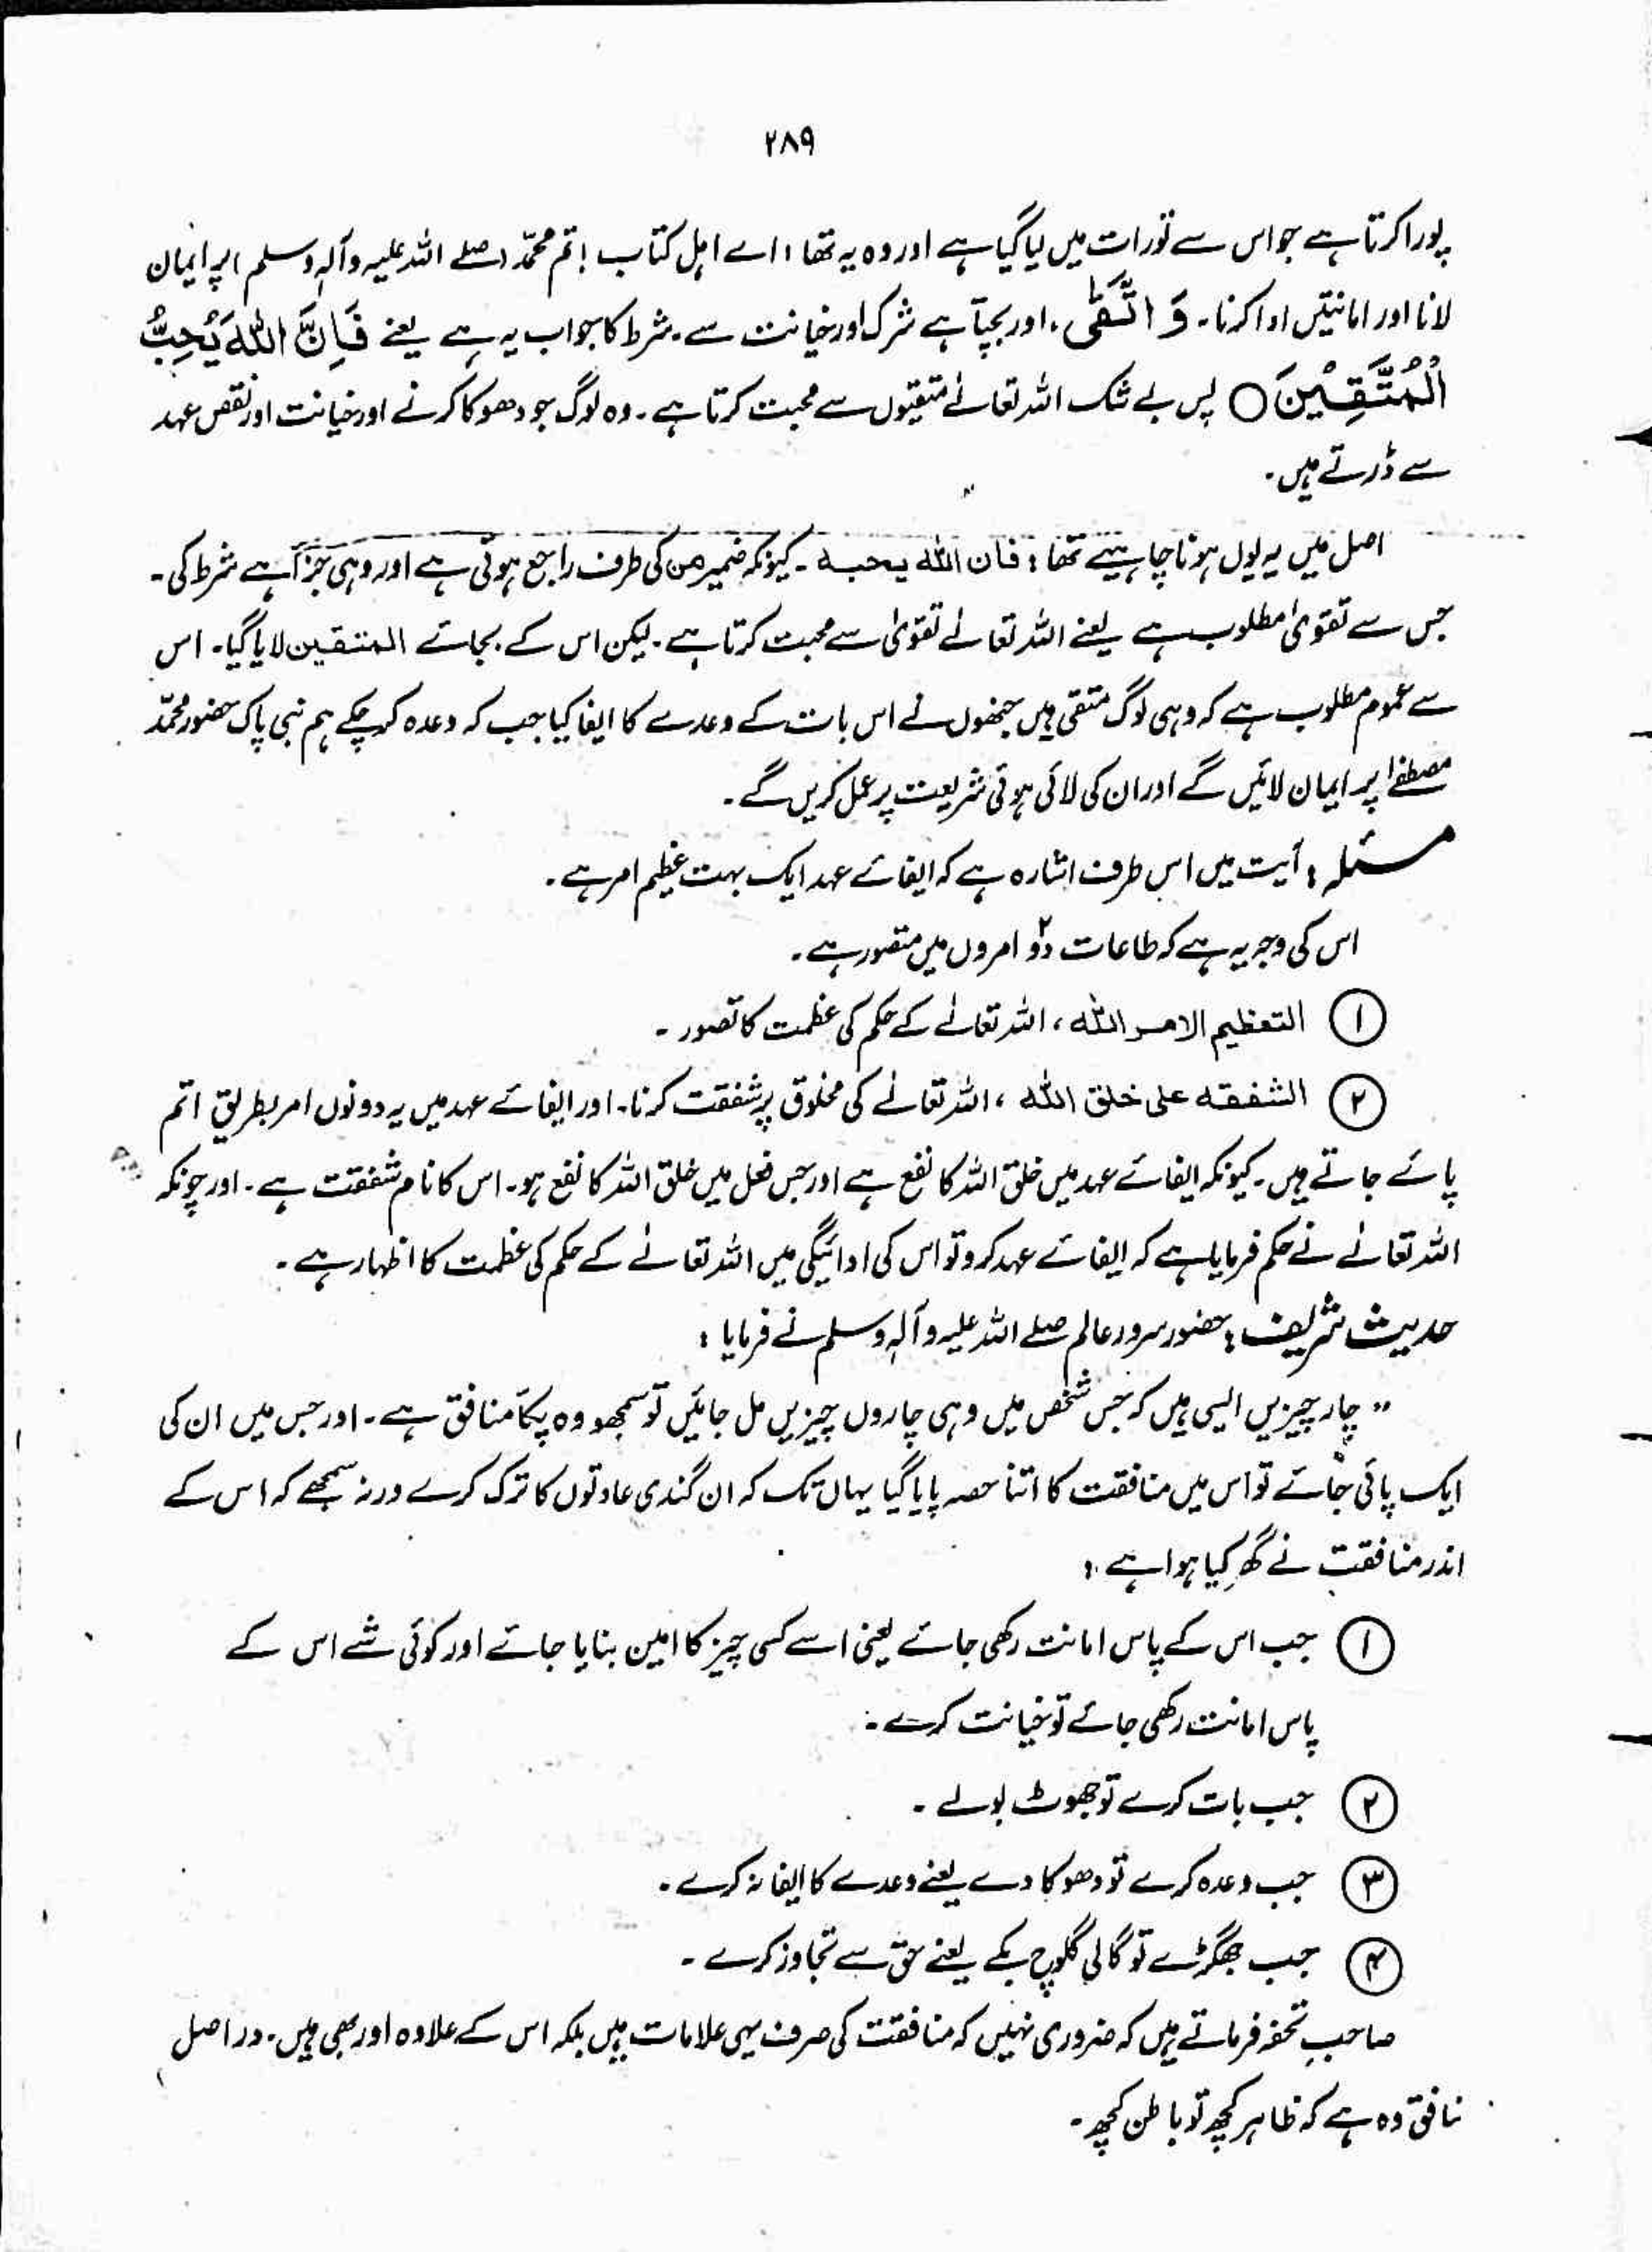 ۲۸۹
پورا کرتا ہے جو اس سے تورات میں لیا گیا ہے اور وہ یہ تھا ، اے اہل کتاب ! تم محمّد (صلے اللہ علیہ وآلہٖ وسلم) پر ایمان
لانا اور امانتیں ادا کرنا ۔ وَ اتَّقٰی ، اور بچتا ہے شرک اور خیانت سے ۔ شرط کا جواب یہ ہے یعنے فَاِنَّ اللّٰہَ یُحِبُّ
الْمُتَّقِیْنَ ○ پس بے شک اللہ تعالےٰ متقیوں سے محبت کرتا ہے ۔ وہ لوگ جو دھوکا کرنے اور خیانت اور نقص عہد
سے ڈرتے ہیں ۔
اصل میں یہ یوں ہونا چاہیئے تھا : فان اللّٰہ یحبہ ۔ کیونکہ ضمیر من کی طرف راجع ہوئی ہے اور وہی جزا ہے شرط کی ۔
جس سے تقویٰ مطلوب ہے یعنے اللہ تعالےٰ تقویٰ سے محبت کرتا ہے ۔ لیکن اس کے بجائے المتقین لایا گیا ۔ اس
سے عموم مطلوب ہے کہ وہی لوگ متقی ہیں جنھوں نے اس بات کے وعدے کا ایفا کیا جب کہ وعدہ کر چکے ہم نبی پاک حضور محمّد
مصطفےٰ پر ایمان لائیں گے اور ان کی لائی ہوئی شریعت پر عمل کریں گے ۔
مسئلہ : آیت میں اس طرف اشارہ ہے کہ ایفائے عہد ایک بہت عظیم امر ہے ۔
اس کی وجہ یہ ہے کہ طاعات دو۲ امروں میں متصور ہے ۔
① التعظیم الامر اللّٰہ ، اللہ تعالےٰ کے حکم کی عظمت کا تصور ۔
② الشفقہ علی خلق اللّٰہ ، اللہ تعالےٰ کی مخلوق پر شفقت کرنا ۔ اور ایفائے عہد میں یہ دونوں امر بطریق اتم
پائے جاتے ہیں ۔ کیونکہ ایفائے عہد میں خلق اللہ کا نفع ہے اور جس فعل میں خلق اللہ کا نفع ہو ۔ اس کا نام شفقت ہے ۔ اور چونکہ
اللہ تعالےٰ نے حکم فرمایا ہے کہ ایفائے عہد کرو تو اس کی ادائیگی میں اللہ تعالےٰ کے حکم کی عظمت کا اظہار ہے ۔
حدیث شریف : حضور سرور عالم صلے اللہ علیہ وآلہٖ وسلم نے فرمایا :
” چار چیزیں ایسی ہیں کہ جس شخص میں وہی چاروں چیزیں مل جائیں تو سمجھو وہ پکّا منافق ہے ۔ اور جس میں ان کی
ایک پائی جائے تو اس میں منافقت کا اتنا حصہ پایا گیا یہاں تک کہ ان گندی عادتوں کا ترک کرے ورنہ سمجھے کہ اس کے
اندر منافقت نے گھر کیا ہوا ہے :
① جب اس کے پاس امانت رکھی جائے یعنی اسے کسی چیز کا امین بنایا جائے اور کوئی شے اس کے
پاس امانت رکھی جائے تو خیانت کرے ۔
② جب بات کرے تو جھوٹ بولے ۔
③ جب وعدہ کرے تو دھوکا دے یعنے وعدے کا ایفا نہ کرے ۔
④ جب جھگڑے تو گالی گلوچ بکے یعنے حق سے تجاوز کرے ۔
صاحبِ تحفہ فرماتے ہیں کہ ضروری نہیں کہ منافقت کی صرف یہی علامات ہیں بلکہ اس کے علاوہ اور بھی ہیں ۔ در اصل
نافق وہ ہے کہ ظاہر کچھ تو باطن کچھ ۔